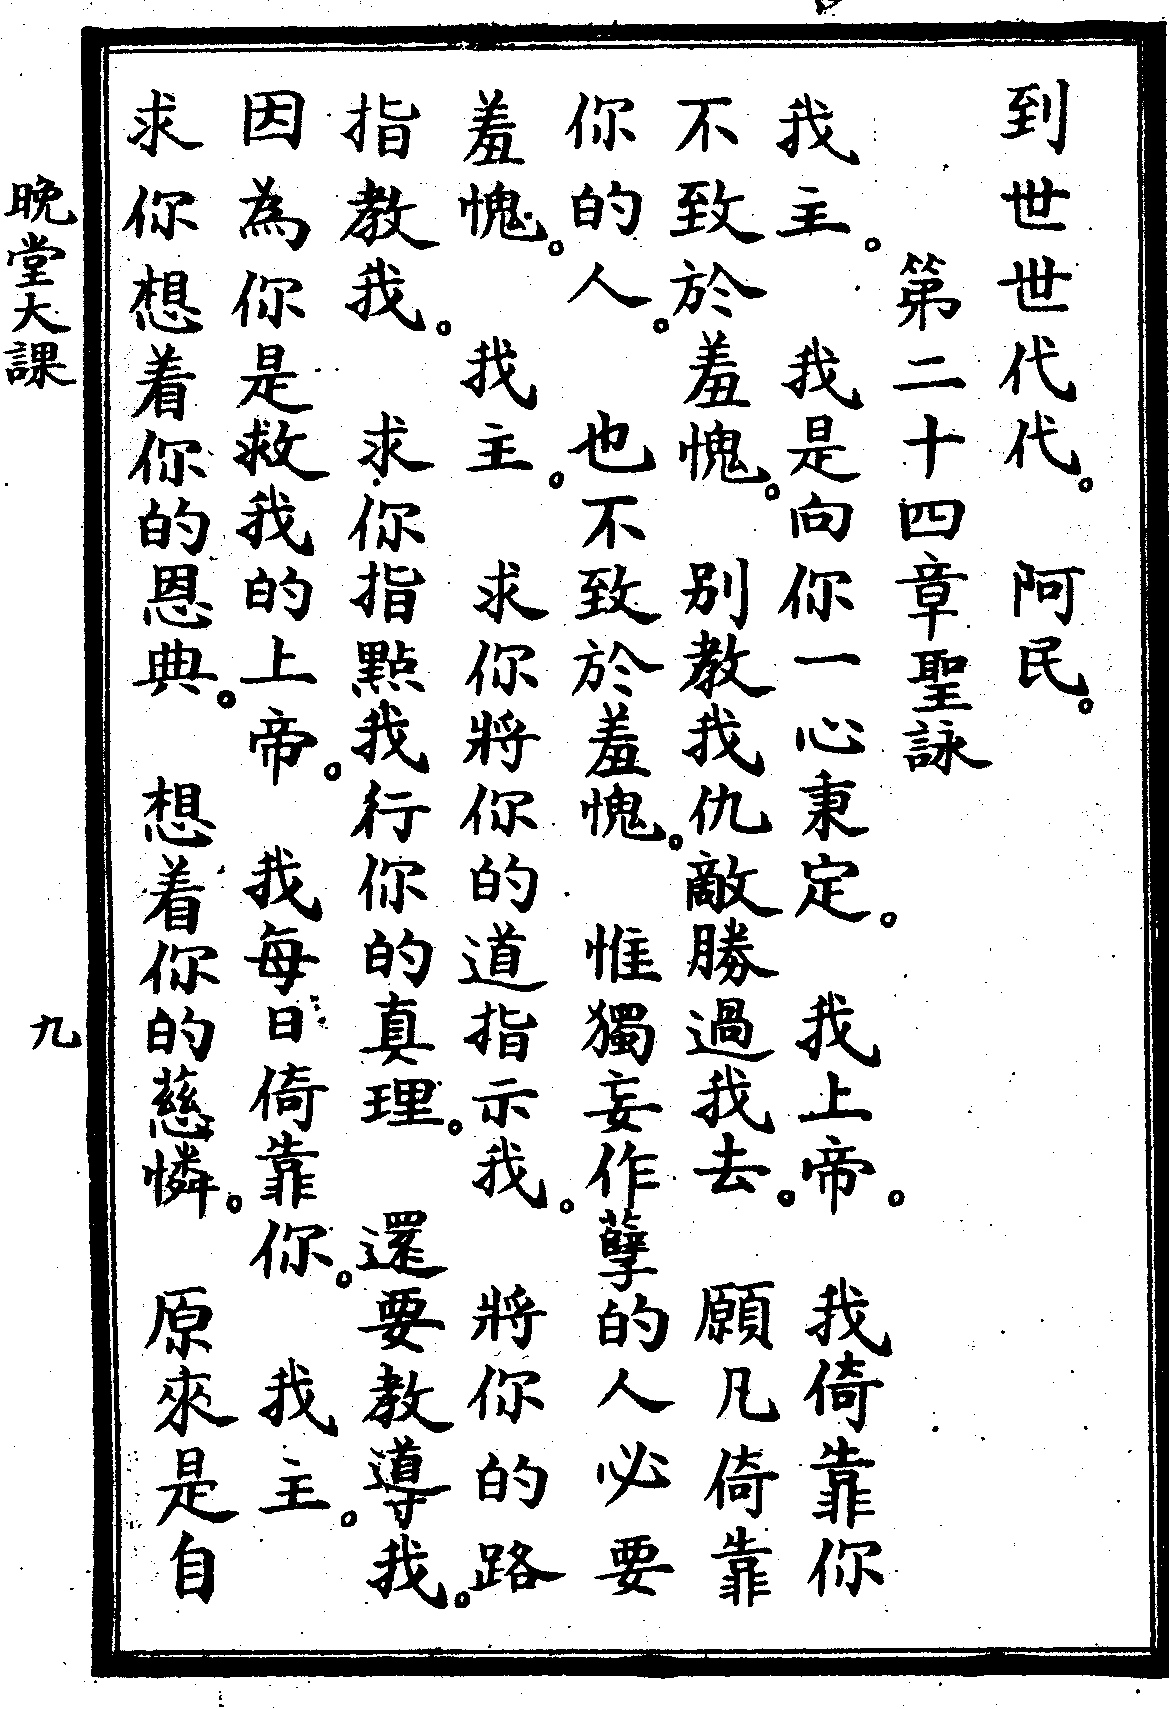 到世世代代。阿民。
第二十四章聖詠
我主。我是向你一心秉定。我上帝。我倚靠你
不致於羞愧。别教我仇敵勝過我去。願凡倚靠
你的人。也不致於羞愧。惟獨妄作孽的人必要
羞愧。我主。求你將你的道指示我。將你的路
指教我。求你指點我行你的真理。還要教導我。
因為你是救我的上帝。我每日倚靠你。我主。
求你想着你的恩典。想着你的慈憐。原來是自
晚堂大課
九